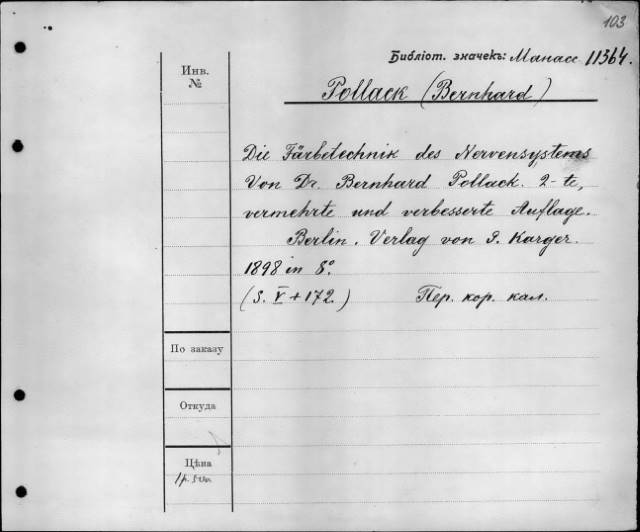 103
Библіот. значекъ: Манасе 11364.
Инв.
№
Pollack (Bernhard)
Die Färbetechnik des Nervensystems
Von Dr. Bernhard Pollack. 2-te,
vermehrte und verbesserte Auflage.
Berlin. Verlag von S. Karger.
1898 in 8°.
(S. V + 172.) Пер. кор. кал.
По заказу
Откуда
Цѣна
1р.